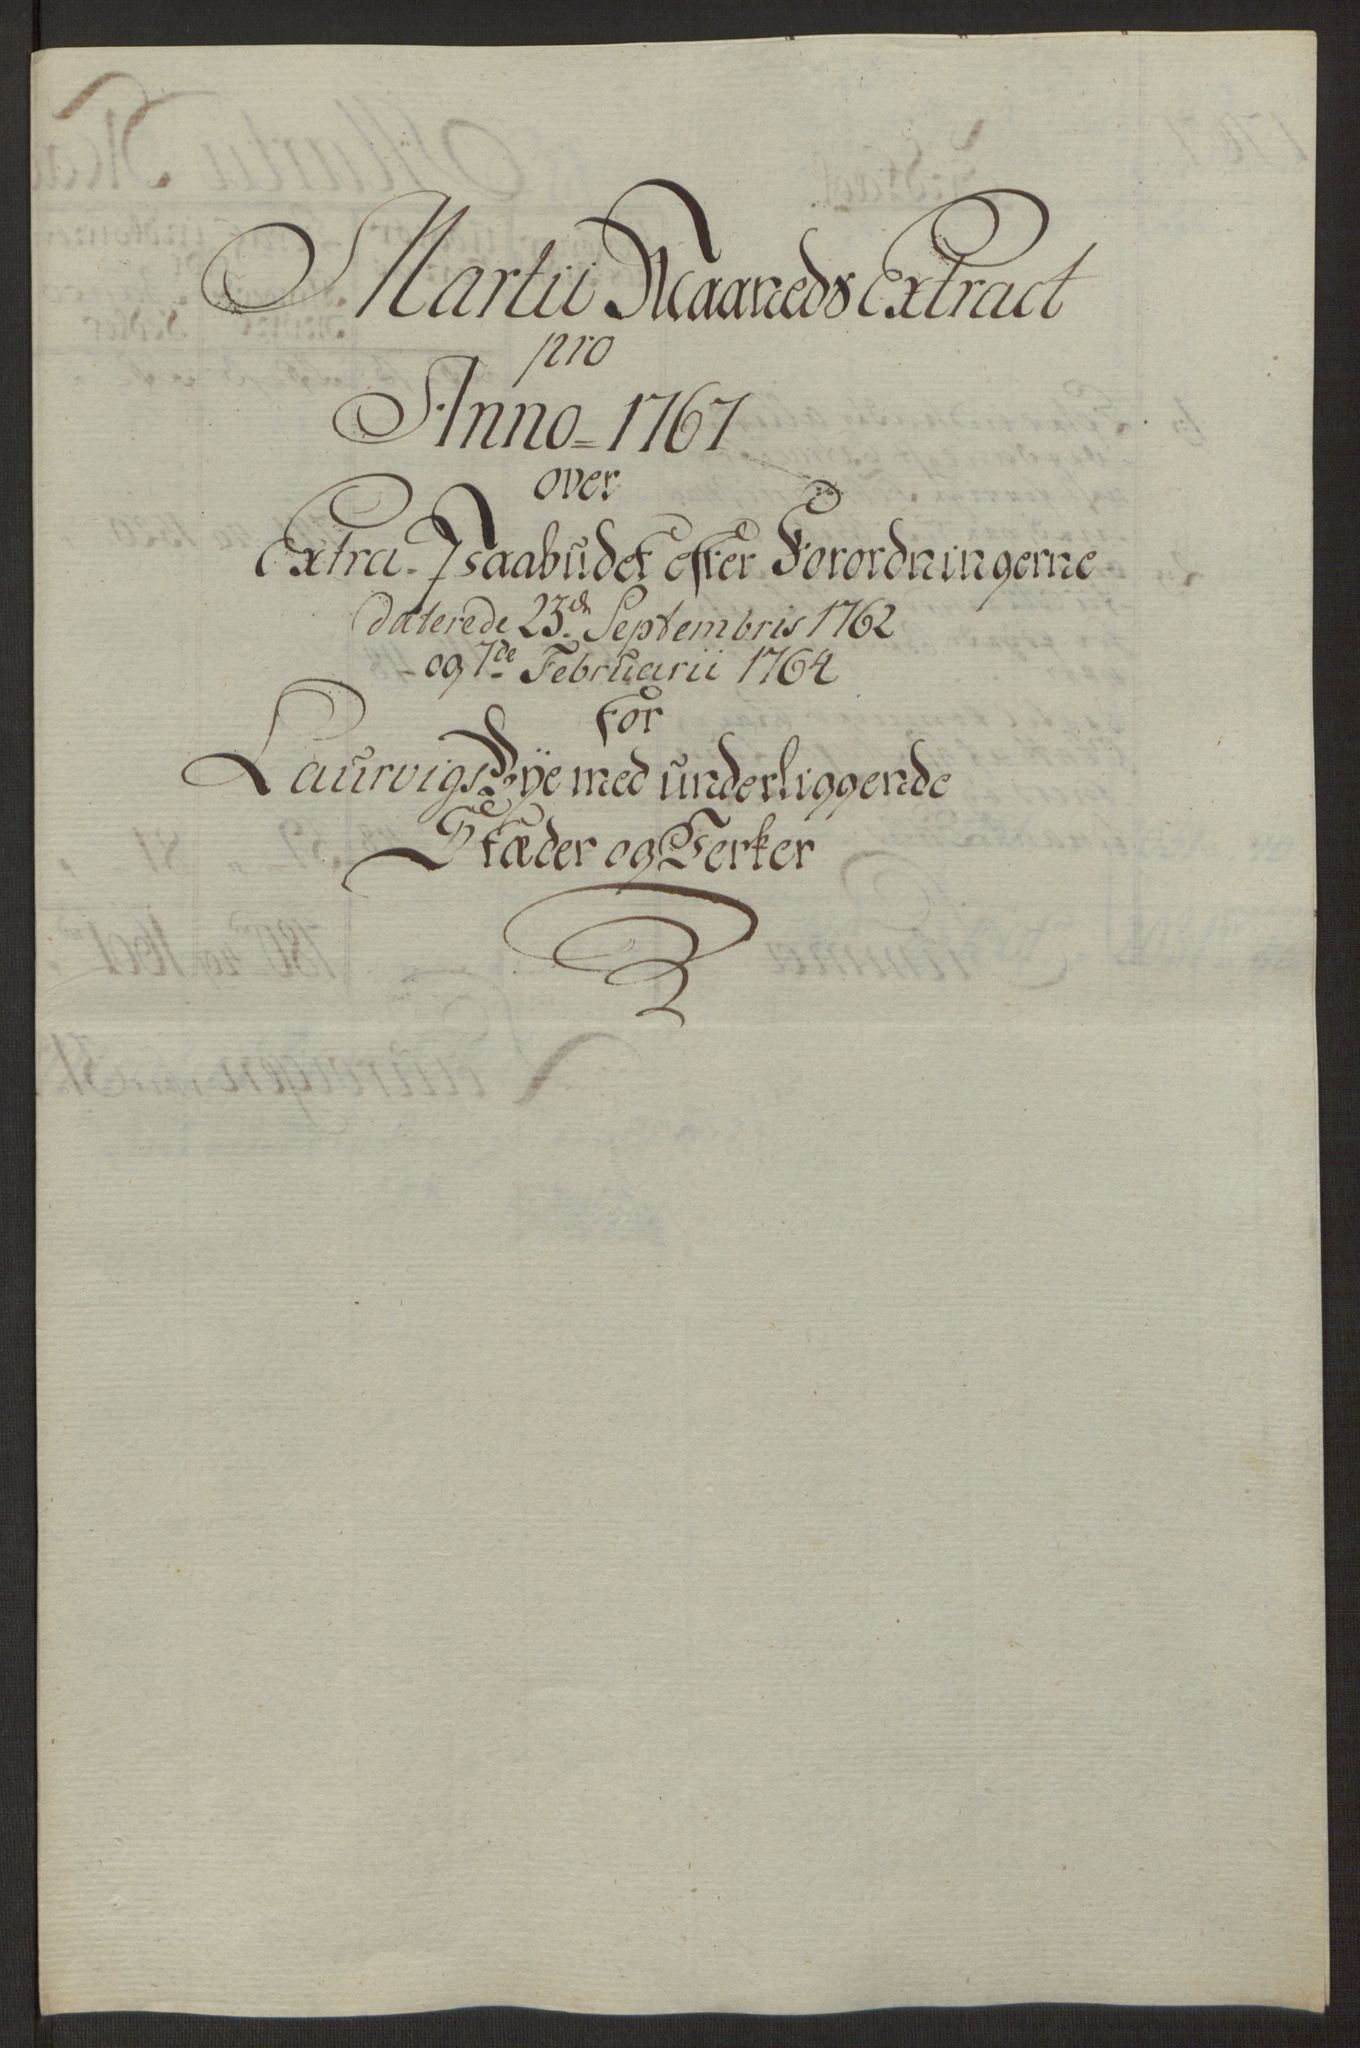 Martii Maaneds Extract
pro
Anno 1767
over
Extra Paabudet efter Forordningerne
daterede 23de Septembris 1762
og 7de Februarii 1764
for
Laurvigs Bÿe med underliggende
Stæder og Ferker